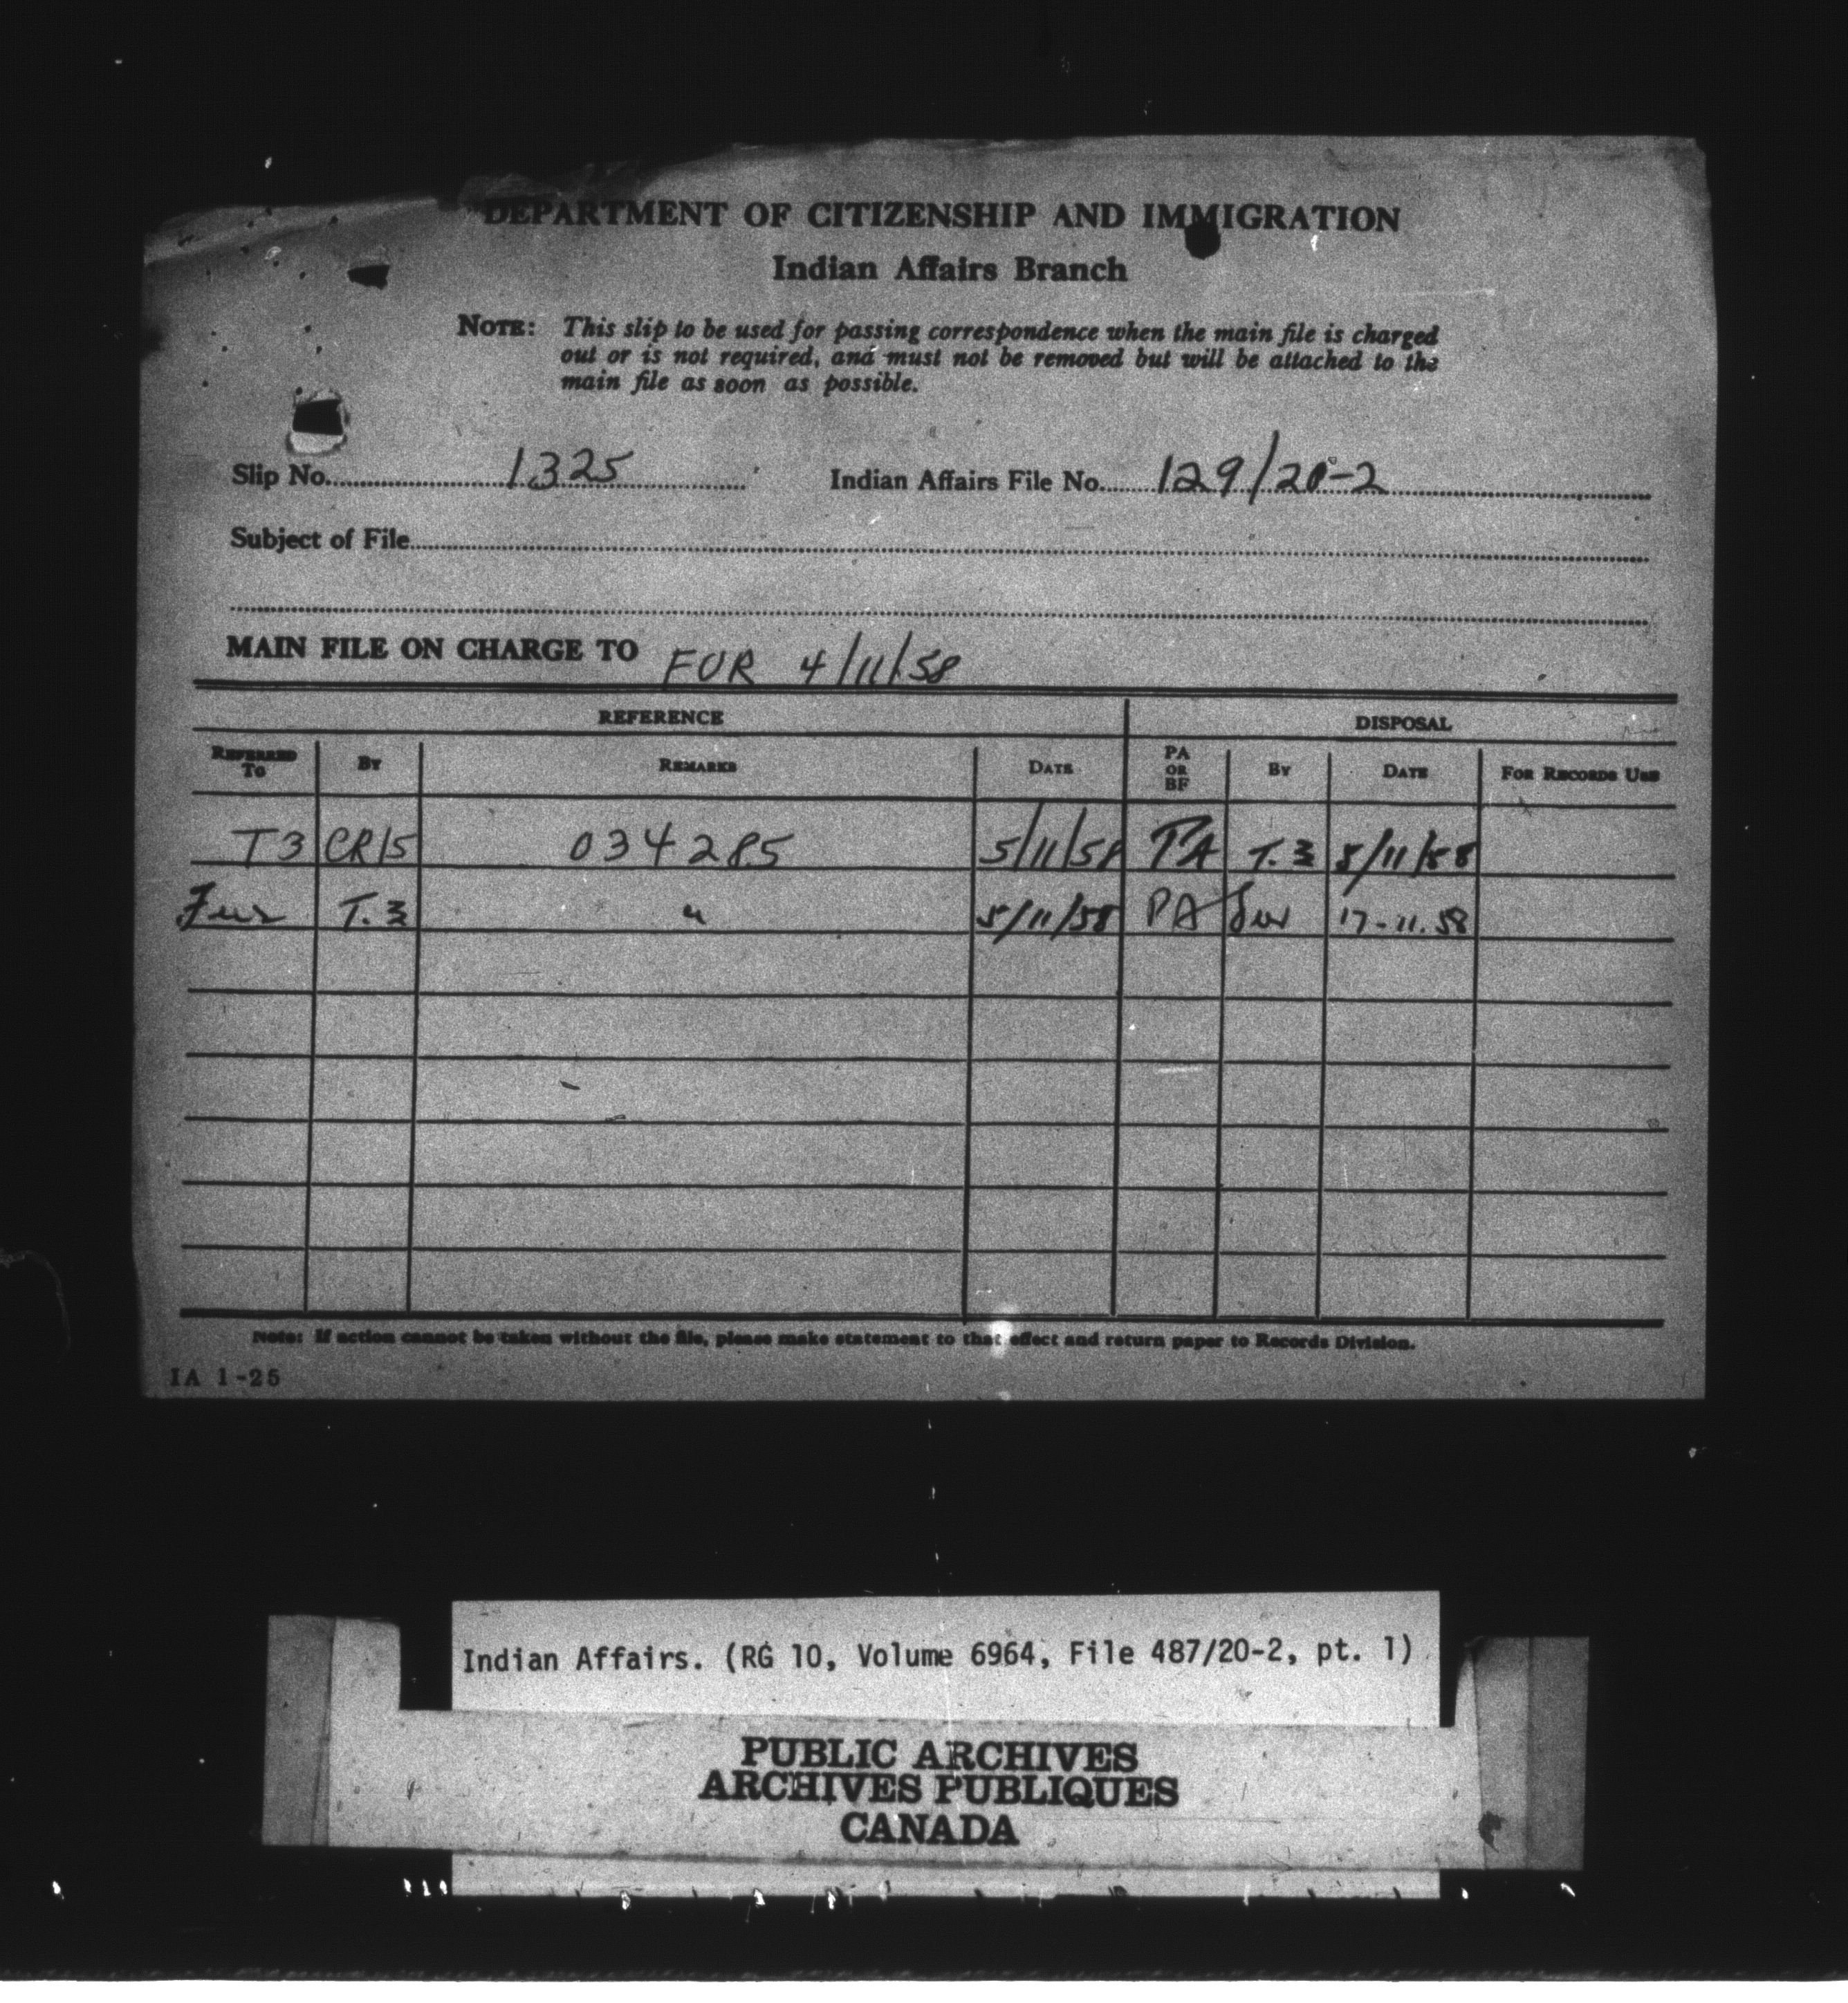 DEPARTMENT OF CITIZENSHIP AND IMMIGRATION
Indian Affairs Branch
NOTE: This slip to be used for passing correspondence when the main file is charged
out or is not required, and must not be removed but will be attached to the
main file as soon as possible.
Slip No. 1325 Indian Affairs File No. 129/20-2
Subject of File
MAIN FILE ON CHARGE TO FUR 4/11/58
REFERENCE DISPOSAL
REFERRED TO BY REMARKS DATE PA OR BF BY DATE FOR RECORDS USE
T3 CR15 034285 5/11/58 PA T.3 5/11/58
Fur T.3 " 5/11/58 PA Fur 17-11.58
Note: If action cannot be taken without the file, please make statement to that effect and return paper to Records Division.
IA 1-25
Indian Affairs. (RG 10, Volume 6964, File 487/20-2, pt. 1)
PUBLIC ARCHIVES
ARCHIVES PUBLIQUES
CANADA